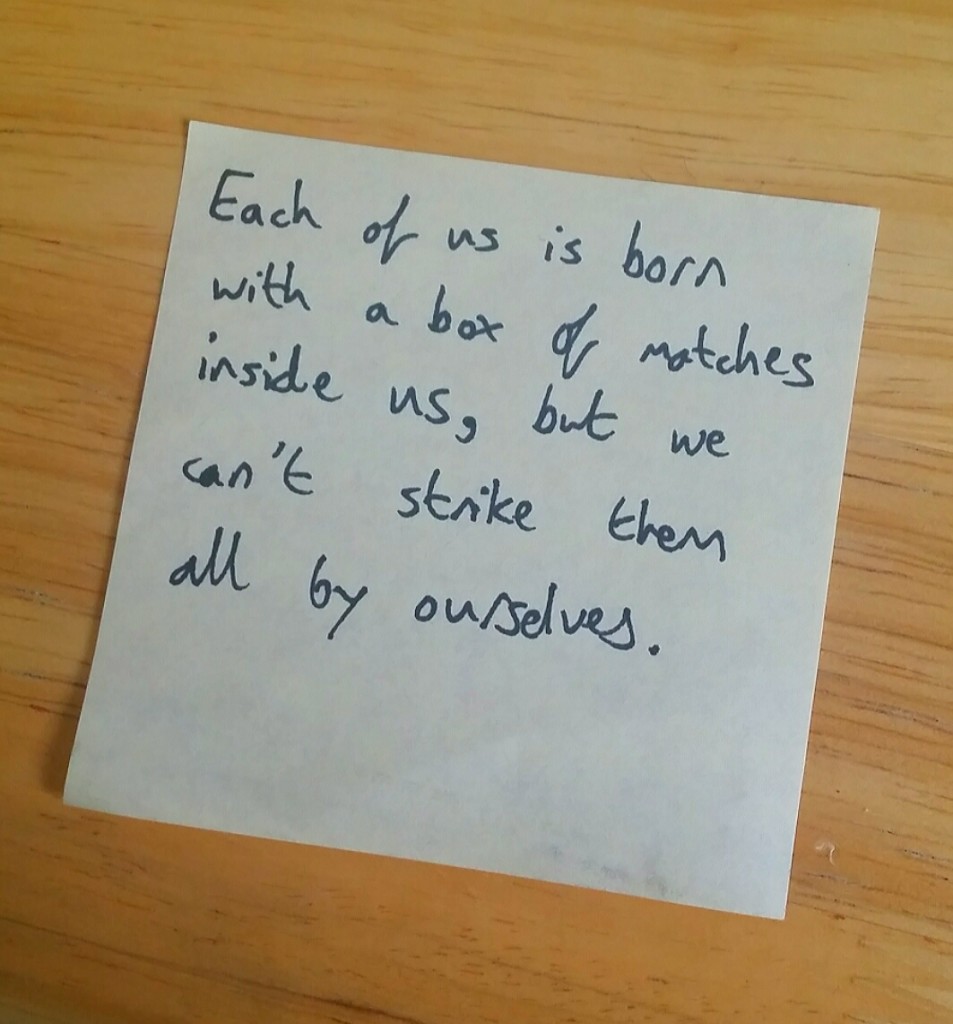 Each of us is born
with a box of matches
inside us, but we
can't strike them
all by ourselves.